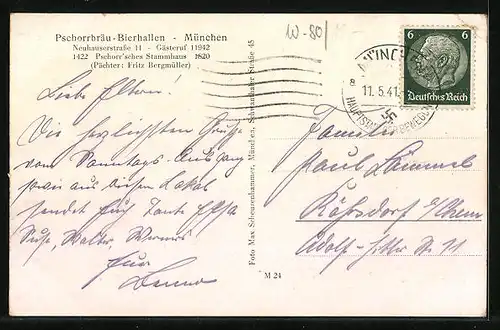 Pschorrbräu-Bierhallen - München
Neuhauserstraße 11 - Gästeruf 11942
1422 Pschorr'sches Stammhaus 1820
(Pächter: Fritz Bergmüller)
W-80/
6 6
Deutsches Reich
MÜNCHEN
11.5.41
HAUPTSTADT DER BEWEGUNG
Liebe Eltern!
Die herzlichsten Grüße
vom Sonntags-Ausgang
sowie aus diesem Lokal
sendet Euch Tante Elsa
Walter, Werner
Euer
Benno
Foto Max Scheuenhammer, München,
M 24
Familie
Paul
Röhrsdorf b/Chem
Adolf-Hitler Str. 11